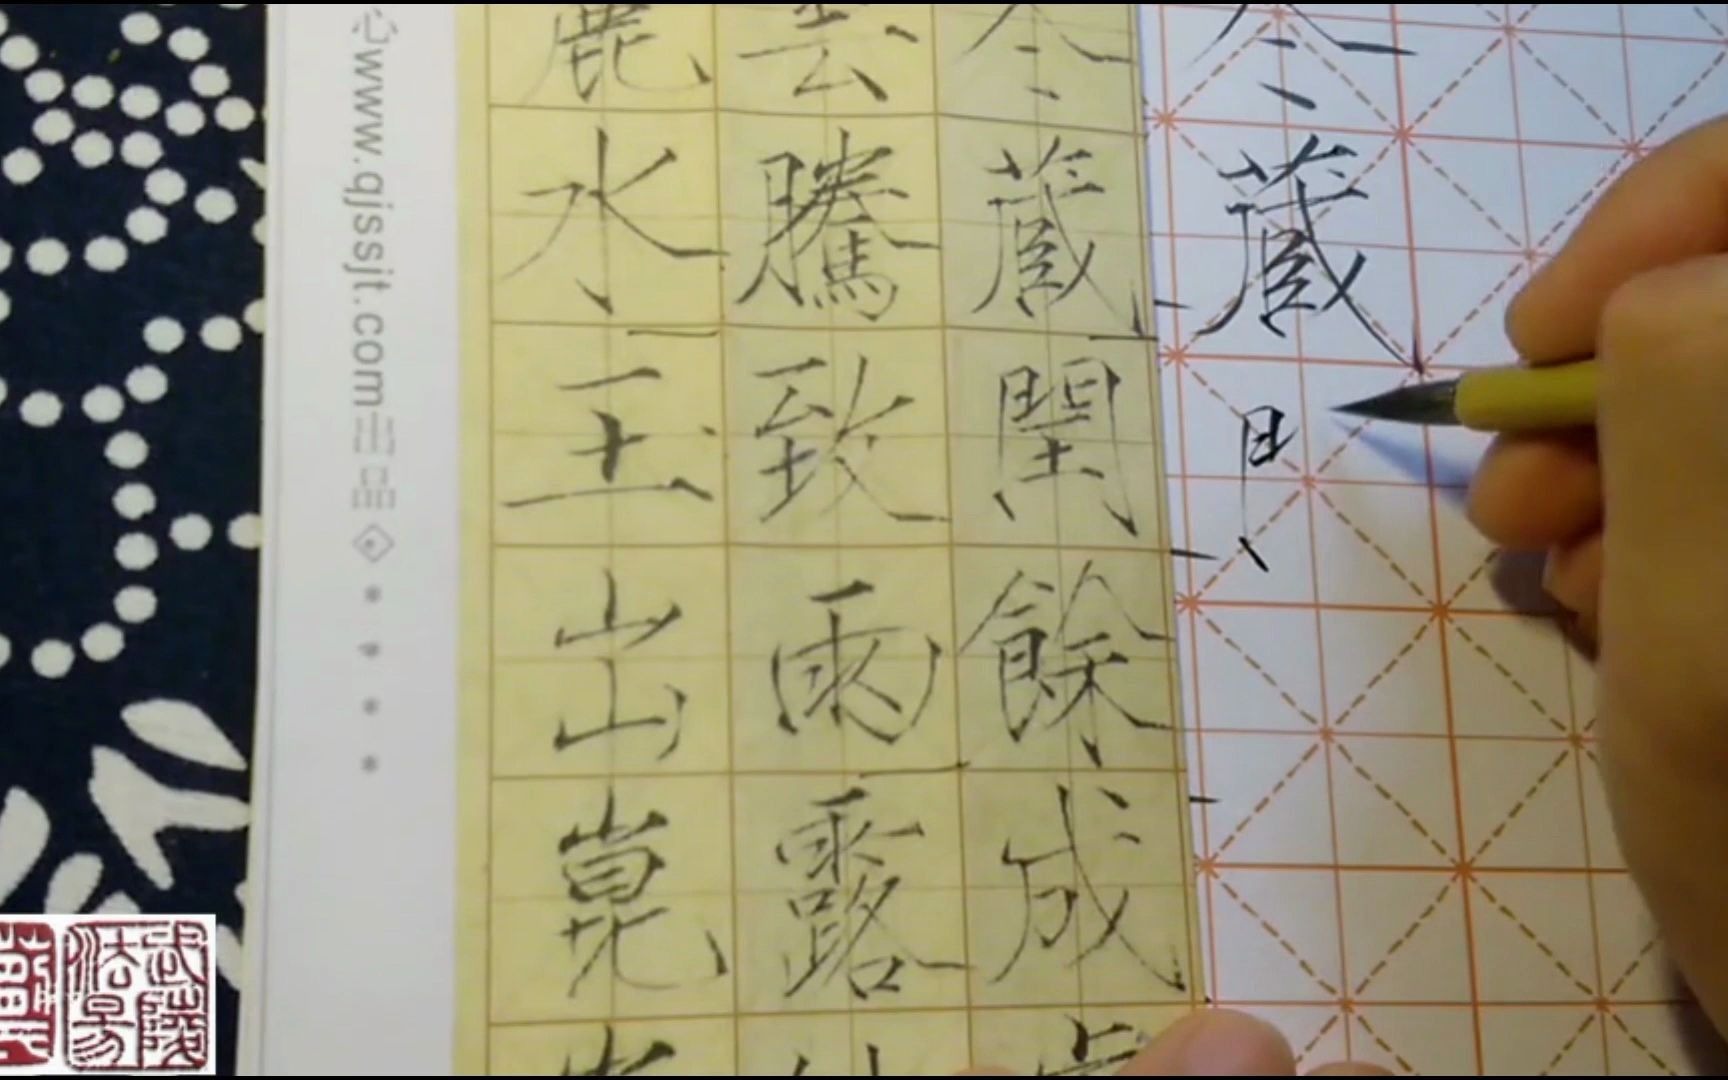 冬藏
冬藏閏餘成歲
雲騰致雨露
麗水玉出崑
心www.qjssjt.com